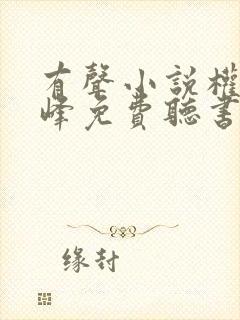 有聲小說權
峰免費聽書
缘封